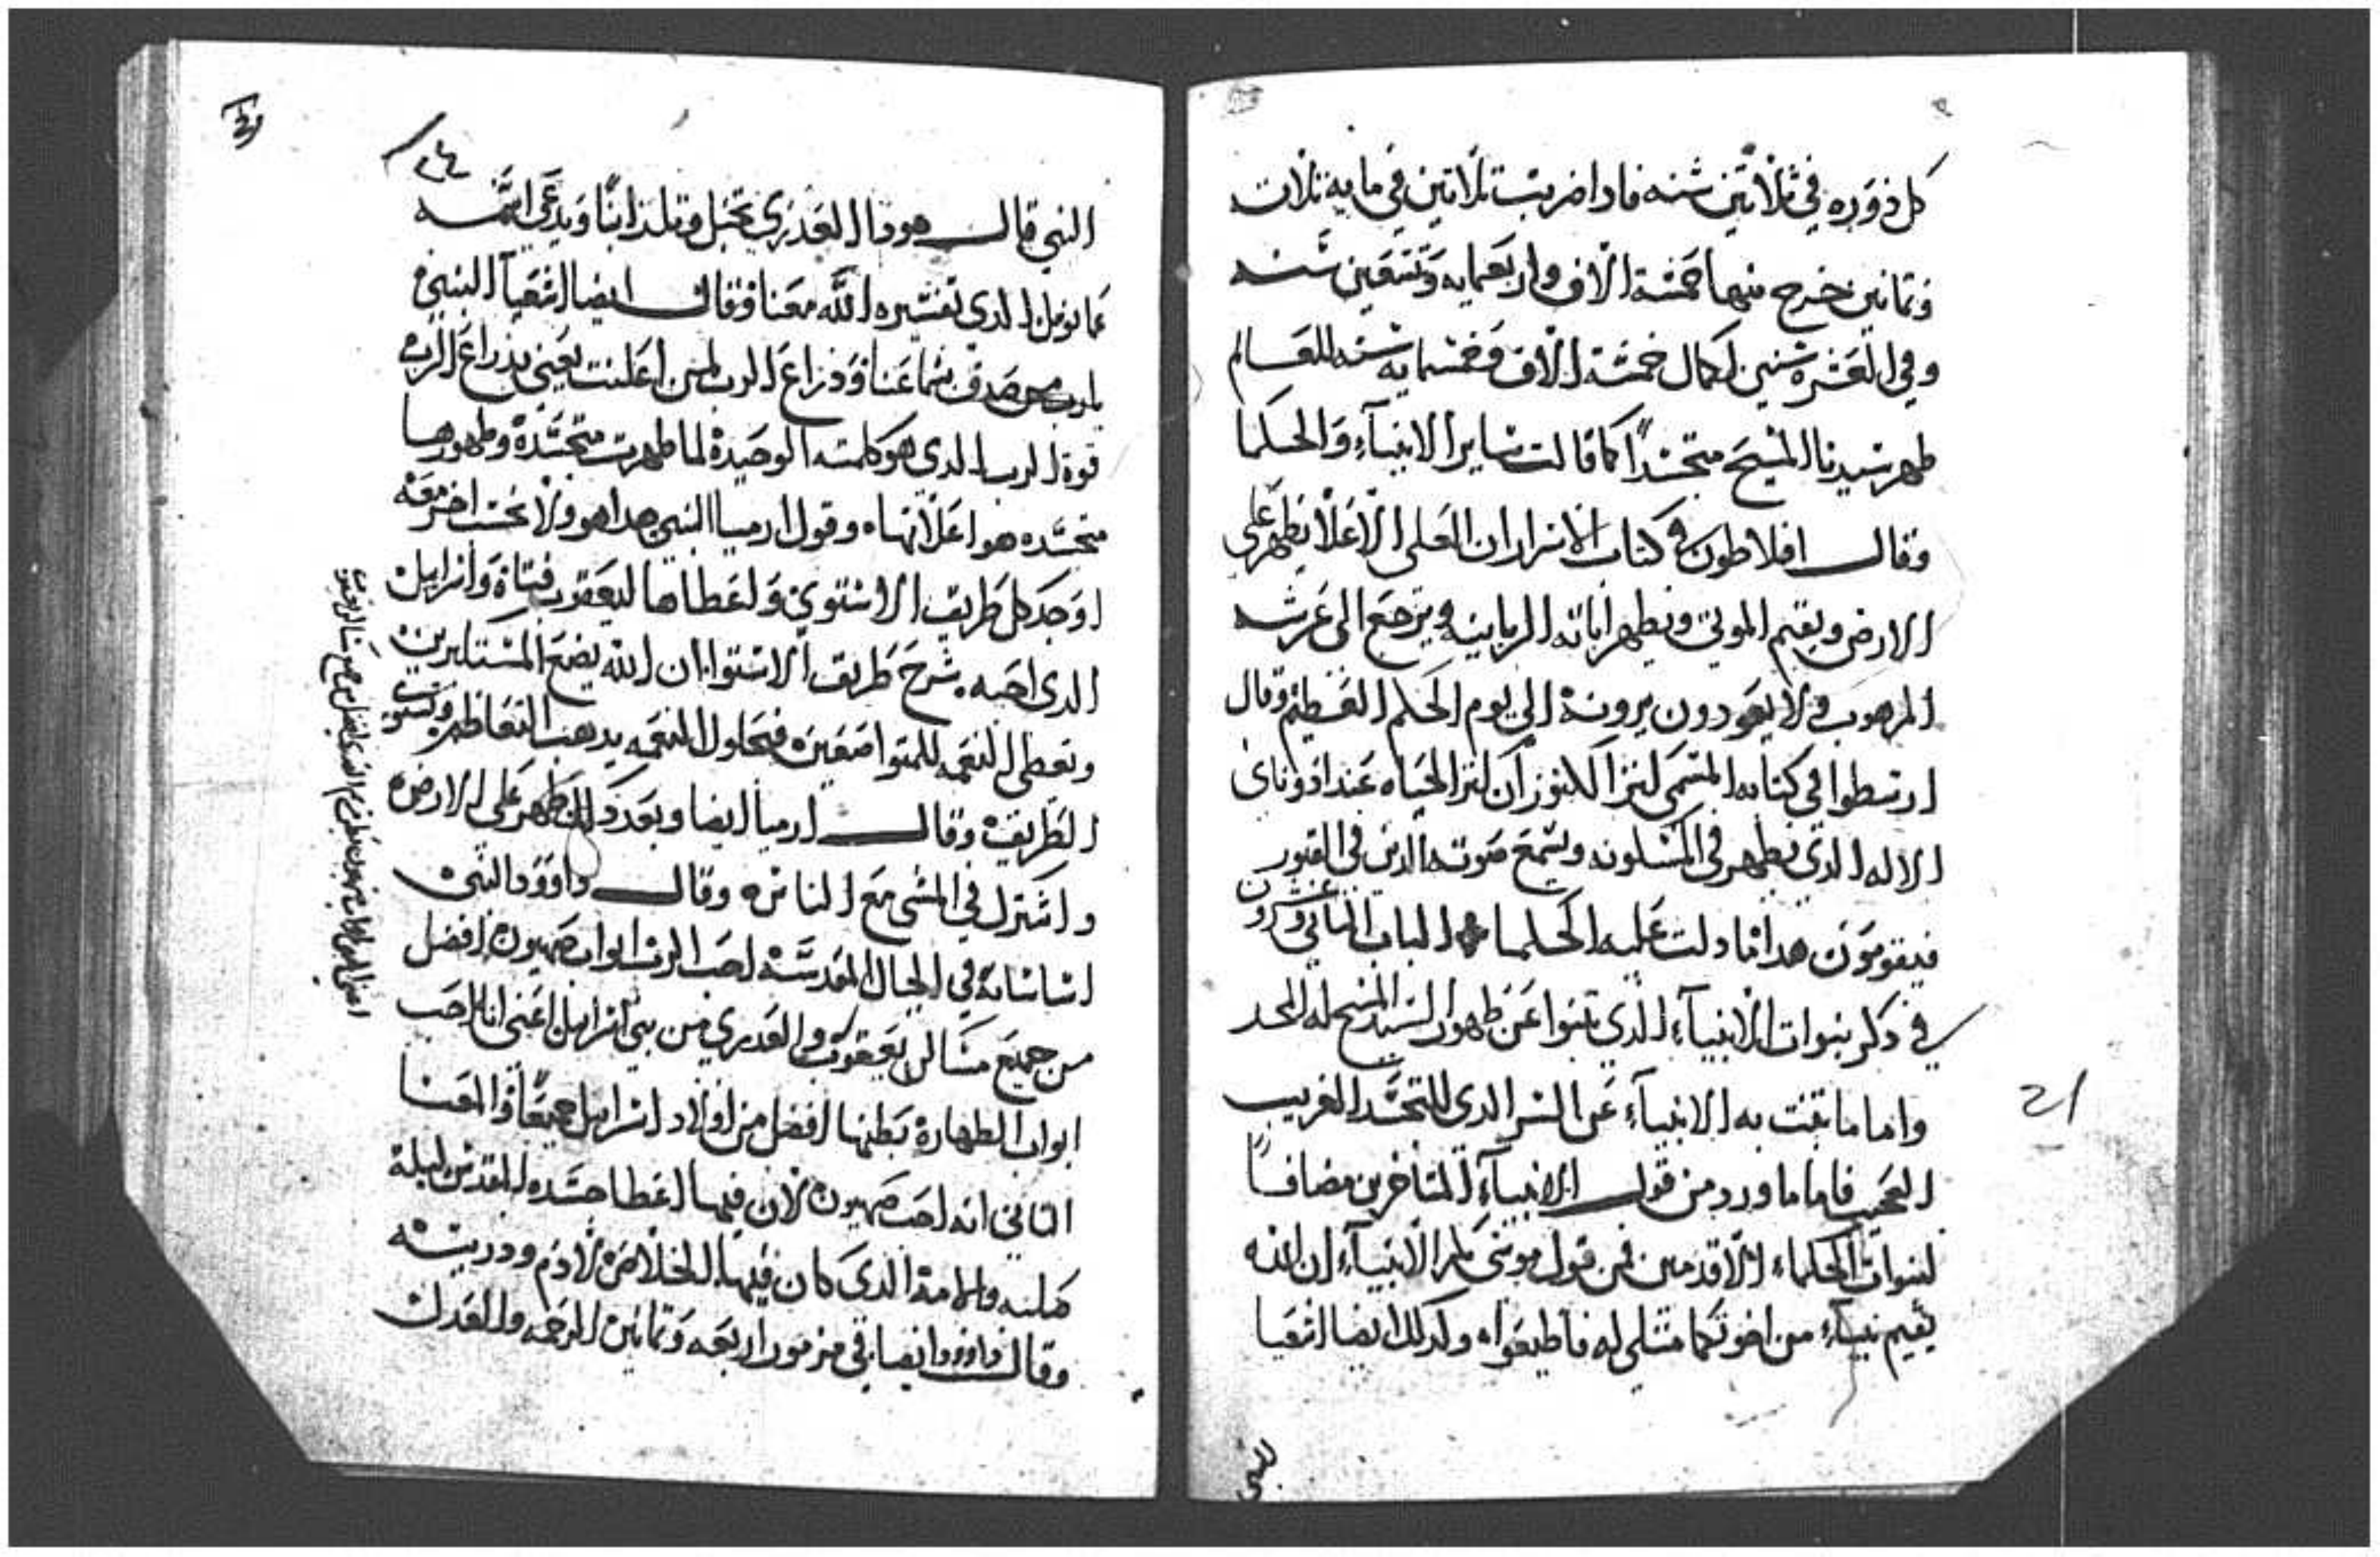 كل دوره في ثلاثين سنه فادا ضربت تلاتين في مايه تلات
وتمانين خرج منها خمسة الاف واربعمايه وتسعين سنه
وفي العشره سنين لكمال خمسة الاف وخمسمايه سنه للعالم
ظهر سيدنا المسيح متجسداً كما قالت ساير الانبيآء والحكما
وقال افلاطون في كتاب الاسرار ان العلي الاعلا يظهر على
الارض ويقيم الموتي ويظهر اياته الربانيه ويرجع الى عرشه
المرهوب ولا يعودون يرونه الى يوم الحكم العظيم وقال
ارسطوا في كتابه المسمى كنز الكنوز ان كنز الحياه عند ادوناى
الاله الدي يظهر في المسكونه ويسمع صوته الدين في القبور
فيقومون هدا ما دلت عليه الحكما الباب التاني وعشرون
في دكر نبوات الانبيآء الدي تنبوا عن ظهور السيد المسيح له المجد
واما ما تنبت به الانبيآء عن السر الدى للتجسد الغريب
العجيب فاما ما ورد من قول الانبيآء المتاخرين مضافاً
لنبوات الحكماء الاقدمين فمن قول موسى الانبيآء ان الله
يقيم نبياء من اخوتكم مثلي له فاطيعوا وكدلك ايضا اشعيا
للنبي
٢٤
النبي قال هودا العدرى تحبل وتلد ابنًا ويدعى اسمه
عمانويل الدي تفسيره الله معنا وقال ايضا اشعيا النبي
يارب من صدق سماعنا ودراع الرب لمن اعلنت يعني بدراع الرب
قوة الرب الدى هو كلمته الوحيدة لما ظهرت متجسدة وظهورها
متجسده هو اعلانها وقول ارميا النبي هدا هو ولا يحسب اخر معه
اوجد كل طريق الاستوي واعطاها ليعقوب فتاه واسرايل
الدى احبه شرح طريق الاستوا ان الله يضع المستكبرين
ويعطى النعمه للمتواضعين فبحلول النعمه يدهب التعاظم وتستوي
الطريق وقال ارميا ايضا وبعد دلك ظهر على الارض
واشترك في المشي مع الناس وقال داوود النبي
اساساته في الجبال المقدسة احب الرب ابواب صهيون افضل
من جميع مساكن يعقوب والعدرى من بني اسرايل اعني انه احب
ابواب الطهارة بطنها افضل من اولاد اسرايل جميعاً والمعنا
التاني انه احب صهيون لان فيها اعطا جسده المقدس ليلة
صلبه والامه الدى كان فيها الخلاص لادم ودريته
وقال داوود ايضا في مزمور اربعه وتمانين الرحمه والعدل